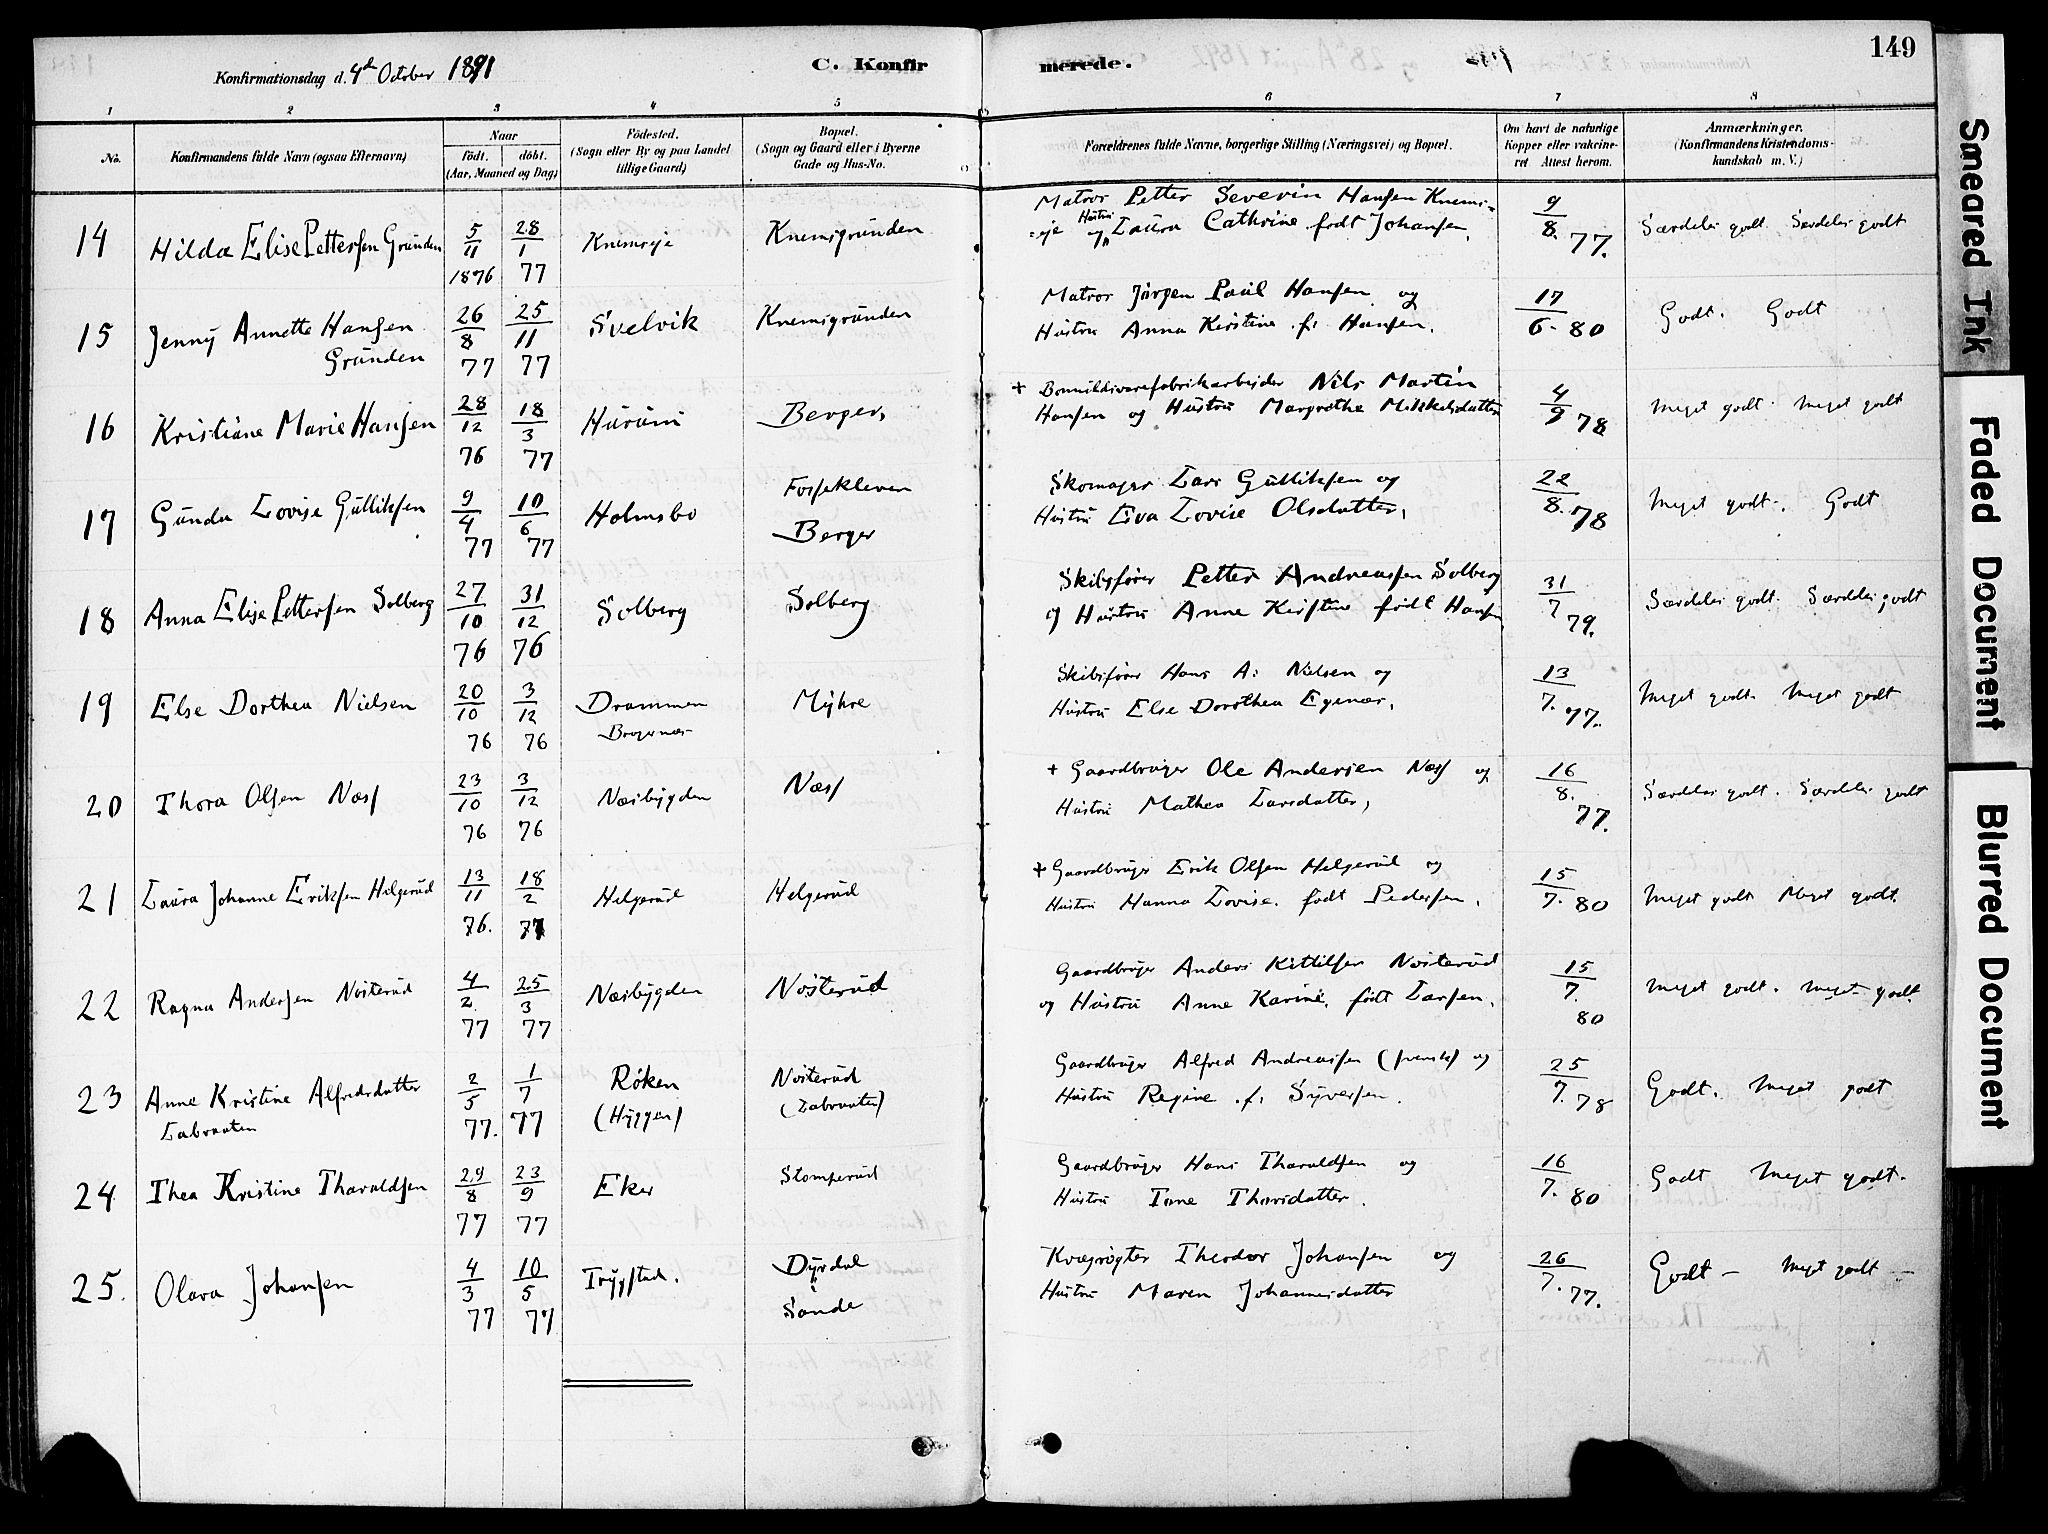 Konfirmationsdag d. 4de October 1891 C. Konfir merede. 149
1 2 3 4 5 6 7 8
No. Konfirmandens fulde Navn (ogsaa Efternavn) Naar født. døbt. (Aar, Maaned og Dag) Fødested. (Sogn eller By og paa Landet tillige Gaard) Bopæl. (Sogn og Gaard eller i Byerne Gade og Hus-No. Forældrenes fulde Navne, borgerlige Stilling (Næringsvei) og Bopæl. Om havt de naturlige Kopper eller vakcineret Attest herom. Anmærkninger. (Konfirmandens Kristendomskundskab m. V.)
14 Hilda Elise Pettersen Grunden 5/11 1876 28/1 77 Knemseje Knemsgrunden Matros Petter Severin Hansen Knems=
=eje og Hustru Laura Cathrine født Johansen, 9/8. 77. Særdeles godt. Særdeles godt
15 Jenny Annette Hansen
Grunden 26/8 77 25/11 77 Svelvik Knemsgrunden Matros Jørgen Paul Hansen og
Hustru Anna Kirstine f. Hansen. 17/6. 80 Godt. Godt
16 Kristiane Marie Hansen 28/12 76 18/3 77 Hurum Berger, + Bomuldsvarefabrikarbejder Nils Martin
Hansen og Hustru Margrethe Mikkelsdatter 4/9 78 Meget godt. Meget godt
17 Gunda Lovise Gulliksen 9/4 77 10/6 77 Holmsbo Fossekleven
Berger Skomager Lars Gulliksen og
Hustru Eva Lovise Olsdatter, 22/8. 78 Meget godt. Godt
18 Anna Elise Pettersen Solberg 27/10 76 31/12 76 Solberg Solberg Skibsfører Petter Andreassen Solberg
og Hustru Anne Kirstine født Hansen 31/7 79. Særdeles godt. Særdeles godt
19 Else Dorthea Nielsen 20/10 76 3/12 76 Drammen
Bragernæs Myhre Skibsfører Hans A. Nielsen og
Hustru Else Dorothea Egenæs, 13/7. 77. Meget godt. Meget godt
20 Thora Olsen Næss 23/10 76 3/12 76 Næsbygden Næss + Gaardbruger Ole Andersen Næss og
Hustru Mathea Larsdatter, 16/8. 77. Særdeles godt. Særdeles godt
21 Laura Johanne Eriksen Helgerud 13/11 76. 18/2 77 Helgerud Helgerud + Gaardbruger Erik Olsen Helgerud og
Hustru Hanna Lovise. født Pedersen, 15/7. 80 Meget godt Meget godt.
22 Ragna Andersen Nosterud 4/2 77 25/3 77 Næsbygden Nosterud Gaardbruger Anders Kittilsen Nosterud
og Hustru Anne Karine, født Larsen, 15/7. 80 Meget godt. Meget godt.
23 Anne Kristine Alfredsdatter
Labraaten 2/5 77. 1/7 77 Røken
(Hyggen) Nosterud
(Labraaten) Gaardbruger Alfred Andreassen (svensk) og
Hustru Regine f. Syversen. 25/7. 78 Godt. Meget godt
24 Thea Kristine Tharaldsen 29/8 77 23/9 77 Eker Stomperud Gaardbruger Hans Tharaldsen og
Hustru Tone Thorsdatter. 16/7. 80 Godt Meget godt.
25. Olava Johansen 4/3 77 10/5 77 Trygstad. Dyrdal
i
Sande Kvægrøgter Theodor Johansen og
Hustru Maren Johannesdatter 26/7. 77. Godt - Meget godt -
Smeared Ink
Faded Document
Blurred Document